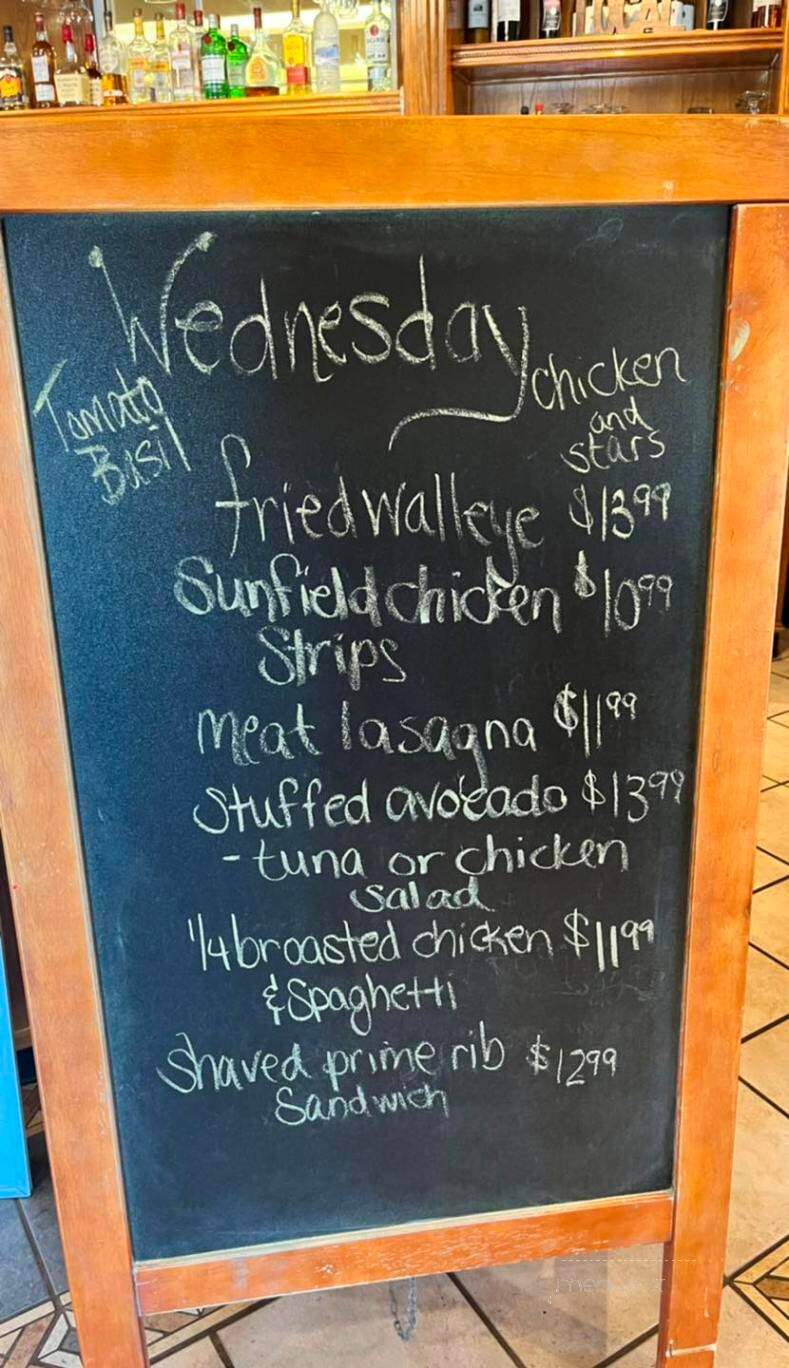 Wednesday
Tomato
Basil
chicken
and
stars
fried walleye $13.99
Sunfield chicken $10.99
Strips
meat lasagna $11.99
stuffed avocado $13.99
- tuna or chicken
salad
1/4 broasted chicken $11.99
& Spaghetti
shaved prime rib $12.99
Sandwich